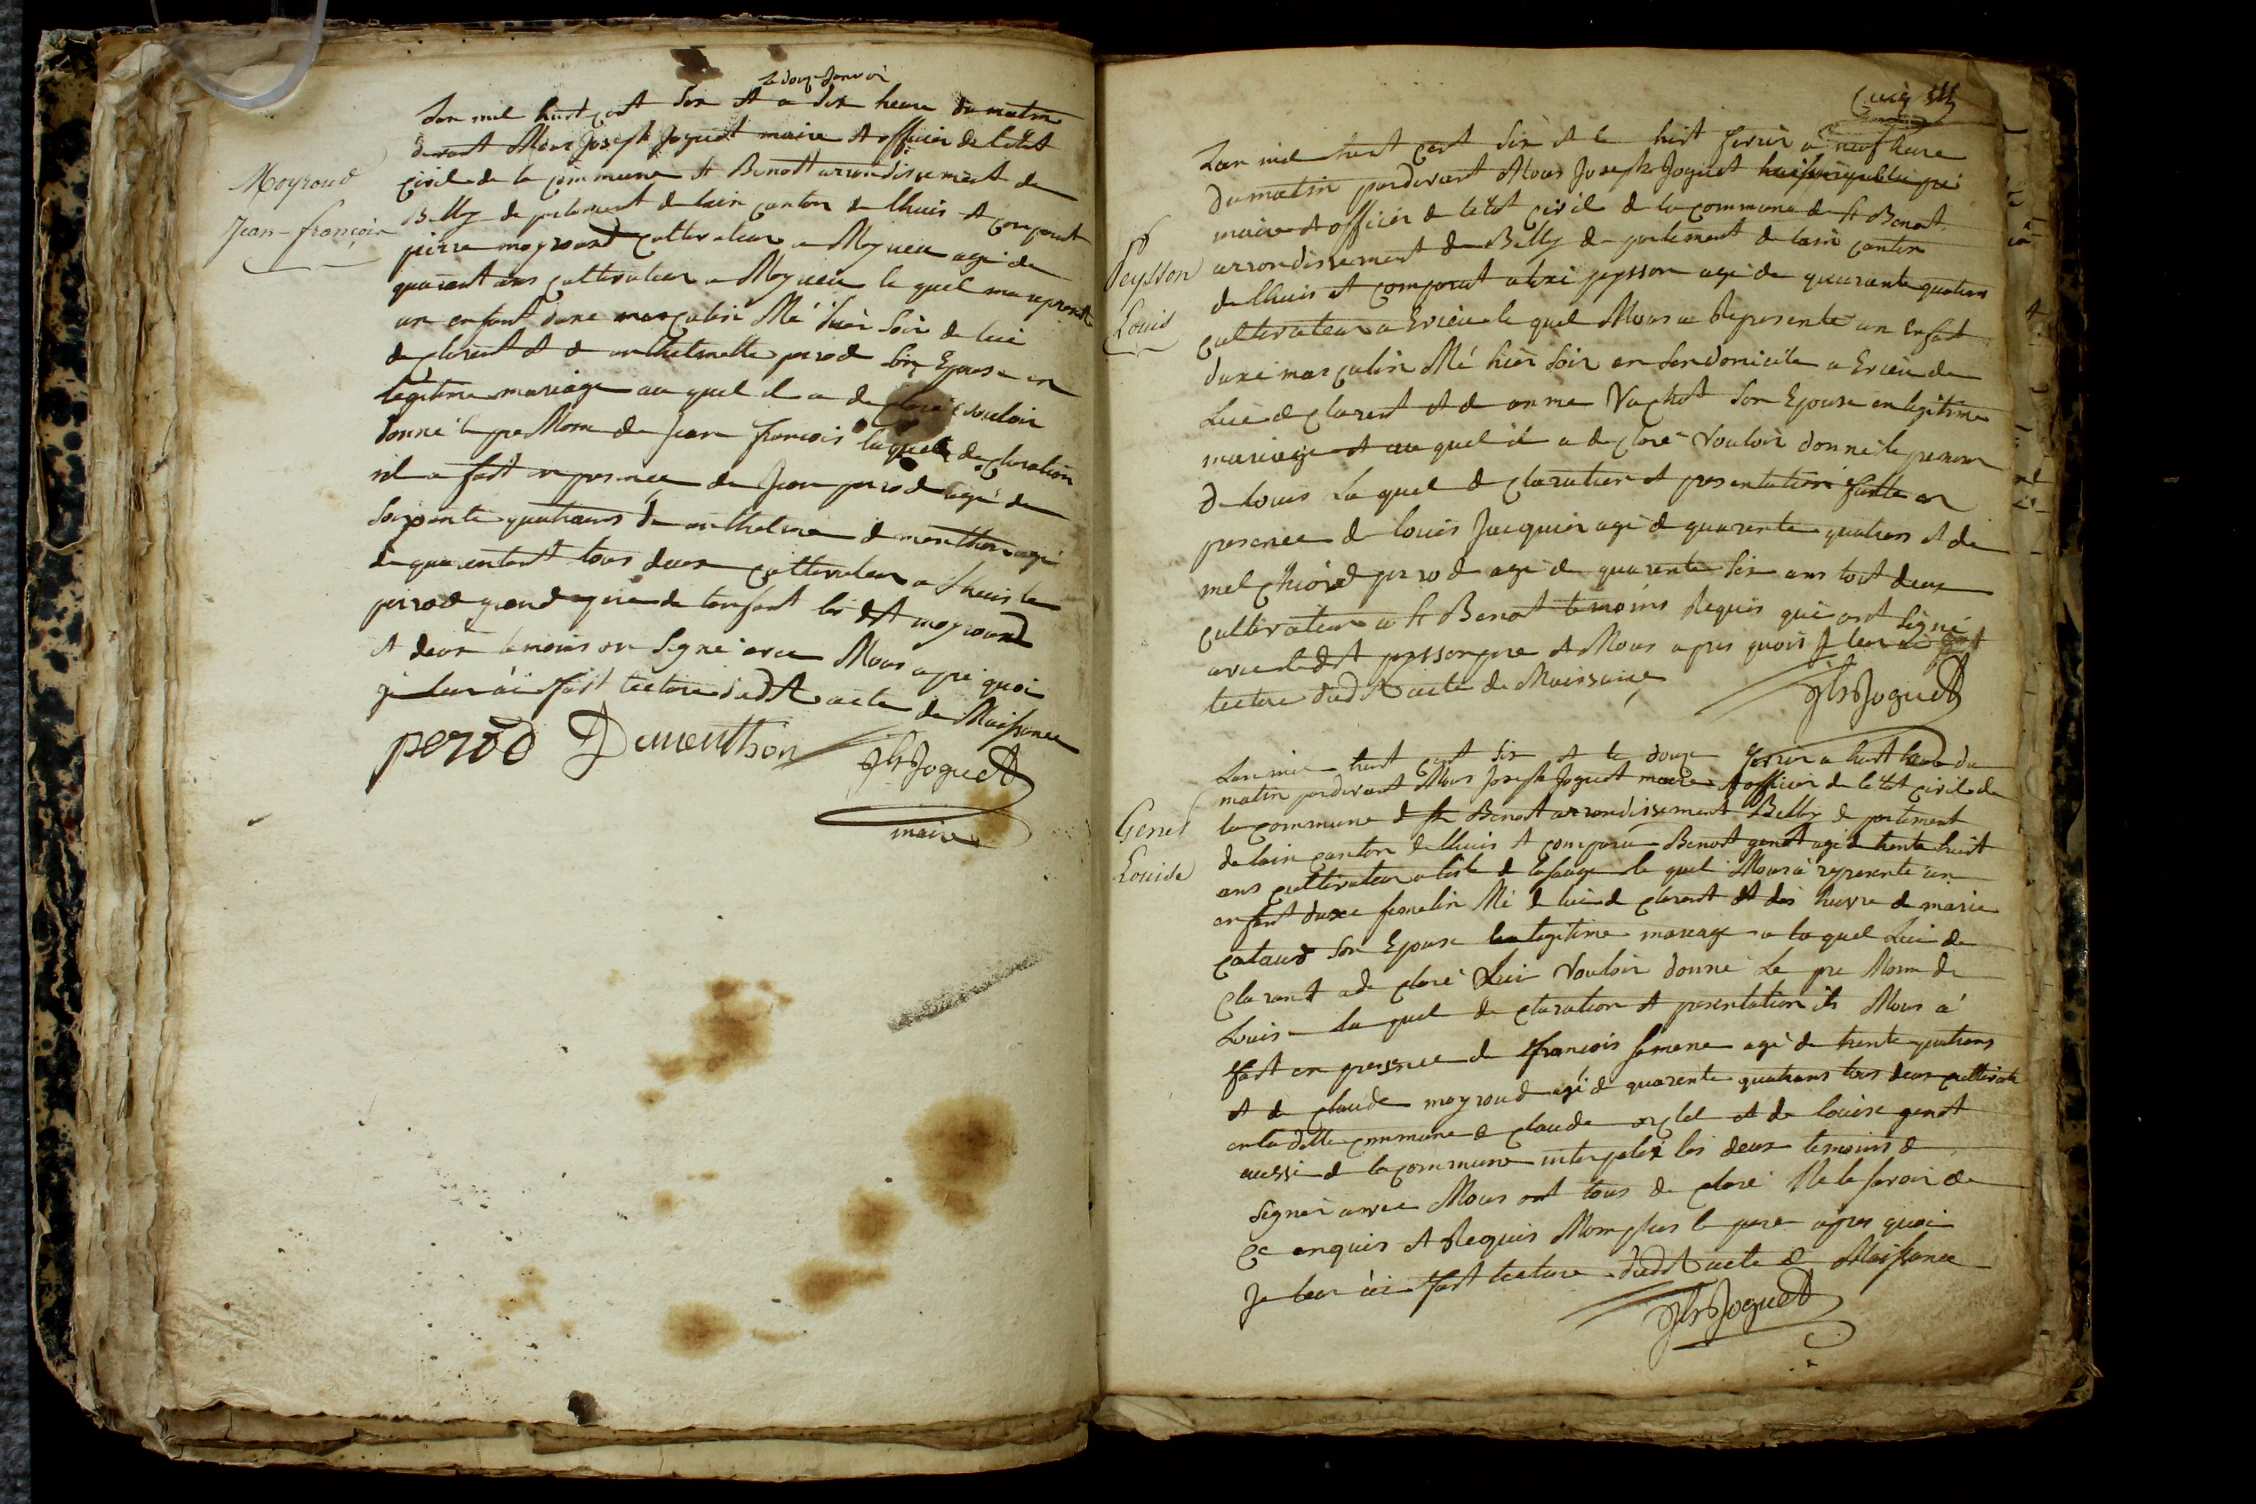 le douze janvier
Lan mil huit cent six et a dix heure du matin
devant Nous Joseph Joguet maire et officier de letat
civil de la commune st Benoit arrondissement de
Moyroud
Jean-françois
Belley de partement de lain canton de lhuis et comparut
pierre moyroud cultivateur a agé de
quarant ans cultivateur a le quel ma represanté
un enfant daxe masculin Né hier soir de lui
de clarant et de anthelmette perod son Epouse en
legitime mariage au quel il a de claré vouloir
donné le pre Nom de Jean francois laquelle de claration
il a fait en presance de Jean perod agé de
soixante quatrans de anthelme demonthon agé
de quarentent tous deux cultivateur a lhuis le
perod grand pere de lenfant les dit moyroud
et deux temoins on signé avec Nous apre quoi
je leur ai fait lecture dudit acte de Naissance
perod Demonthon Jh Joguet
maire
Lan mil huit cent six et le huit fevrier a neuf heure
du matin pardevant Nous Joseph Joguet
maire et officier de letat civil de la commune de st Benoit
Peysson
Louis
arrondissement de Belley de partement de lain canton
de lhuis et comparut peysson agé de quarante quatrans
cultivateur a Evieu le quel Nous a Represente un Enfant
daxe masculin Né hier soir en son domicile a Evieu de
Lui de clarent et de anne Vachot son Epouse en legitime
mariage et au quel il a de claré vouloir donné le prenom
de louis La quel de claration et presentation faitte en
presence de louis Jacquier agé de quarente quatrans et de
mel chiord perrod agé de quarente six ans tout deux
cultivateur a st Benoit temoins Requis qui ont signé
avec le dit peysson pere et Nous apres quois J leur ai fait
lecture dudit acte de Naissance
Jh Joguet
Lan mil huit cent six et le douze fevrier a huit heure du
matin pardevant Nous Joseph Joguet maire et officier de letat civil de
Genet
Louise
la commune de st Benoit arrondissement Belley de partement
de lain canton de lhuis et comparu Benoit genet agé de trente huit
ans cultivateur a le quel Nous a represente un
enfant daxe femelin Né de lui de clarent et des heuvre de marie
cataud son Epouse en legitime mariage a la quel Lui de
clarant a de claré Lui vouloir donné Le pre Nom de
Louise la quel de claration et presentation ils Nous a
fait en presence de francois agé de trente quatrans
et de claude moyroud agé de quarente quatrans tous deux cultivate
en la ditte commune de claude et de louise genet
aussi de la commune interpelés les deux temoins de
signer avec Nous ont tous de claré Ne le savoir de
ce enquis et Requis Nomplus le pere apres quoi
Je leur ai fait lecture dudit acte de Naissance
Jh Joguet